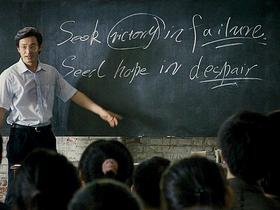 Seek victory in failure.
Seek hope in despair